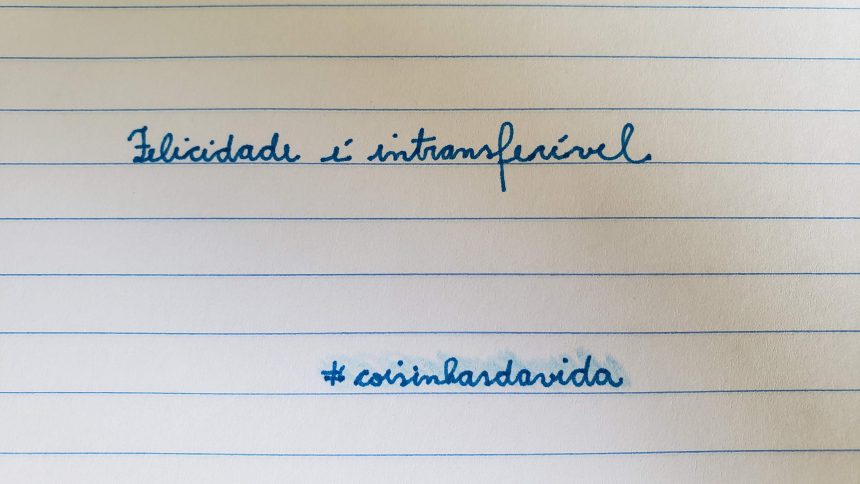 Felicidade é intransferível.
#coisinhasdavida